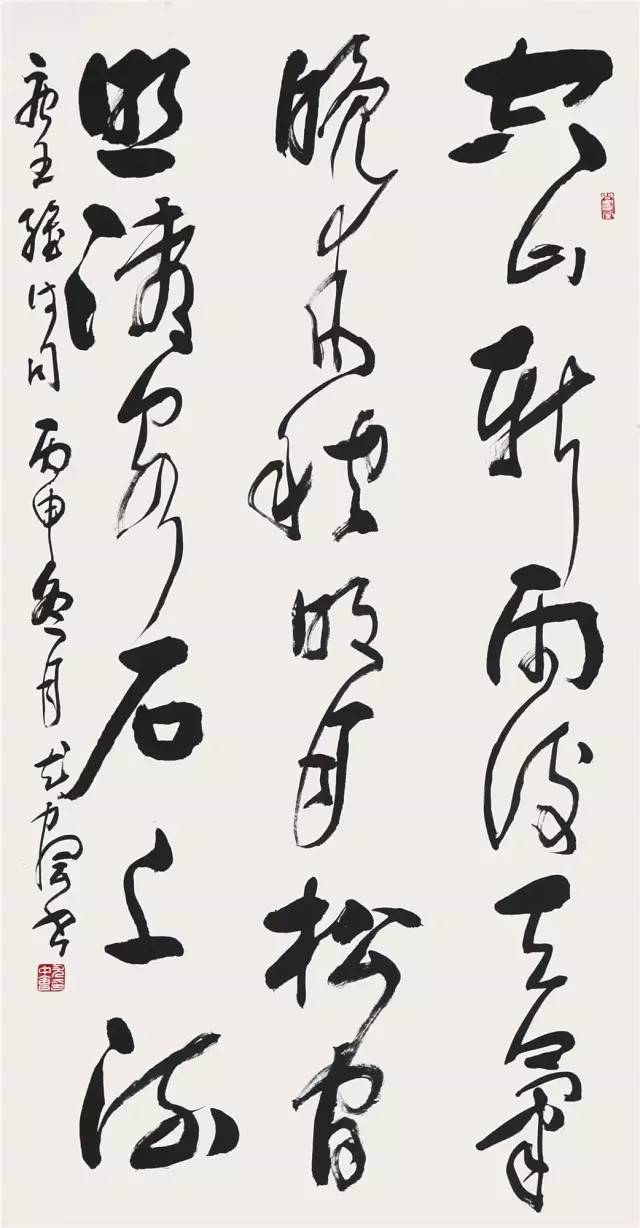 空山新雨後天氣
晚来秋明月松間
照清泉石上流
唐王維詩句 丙申 月 书